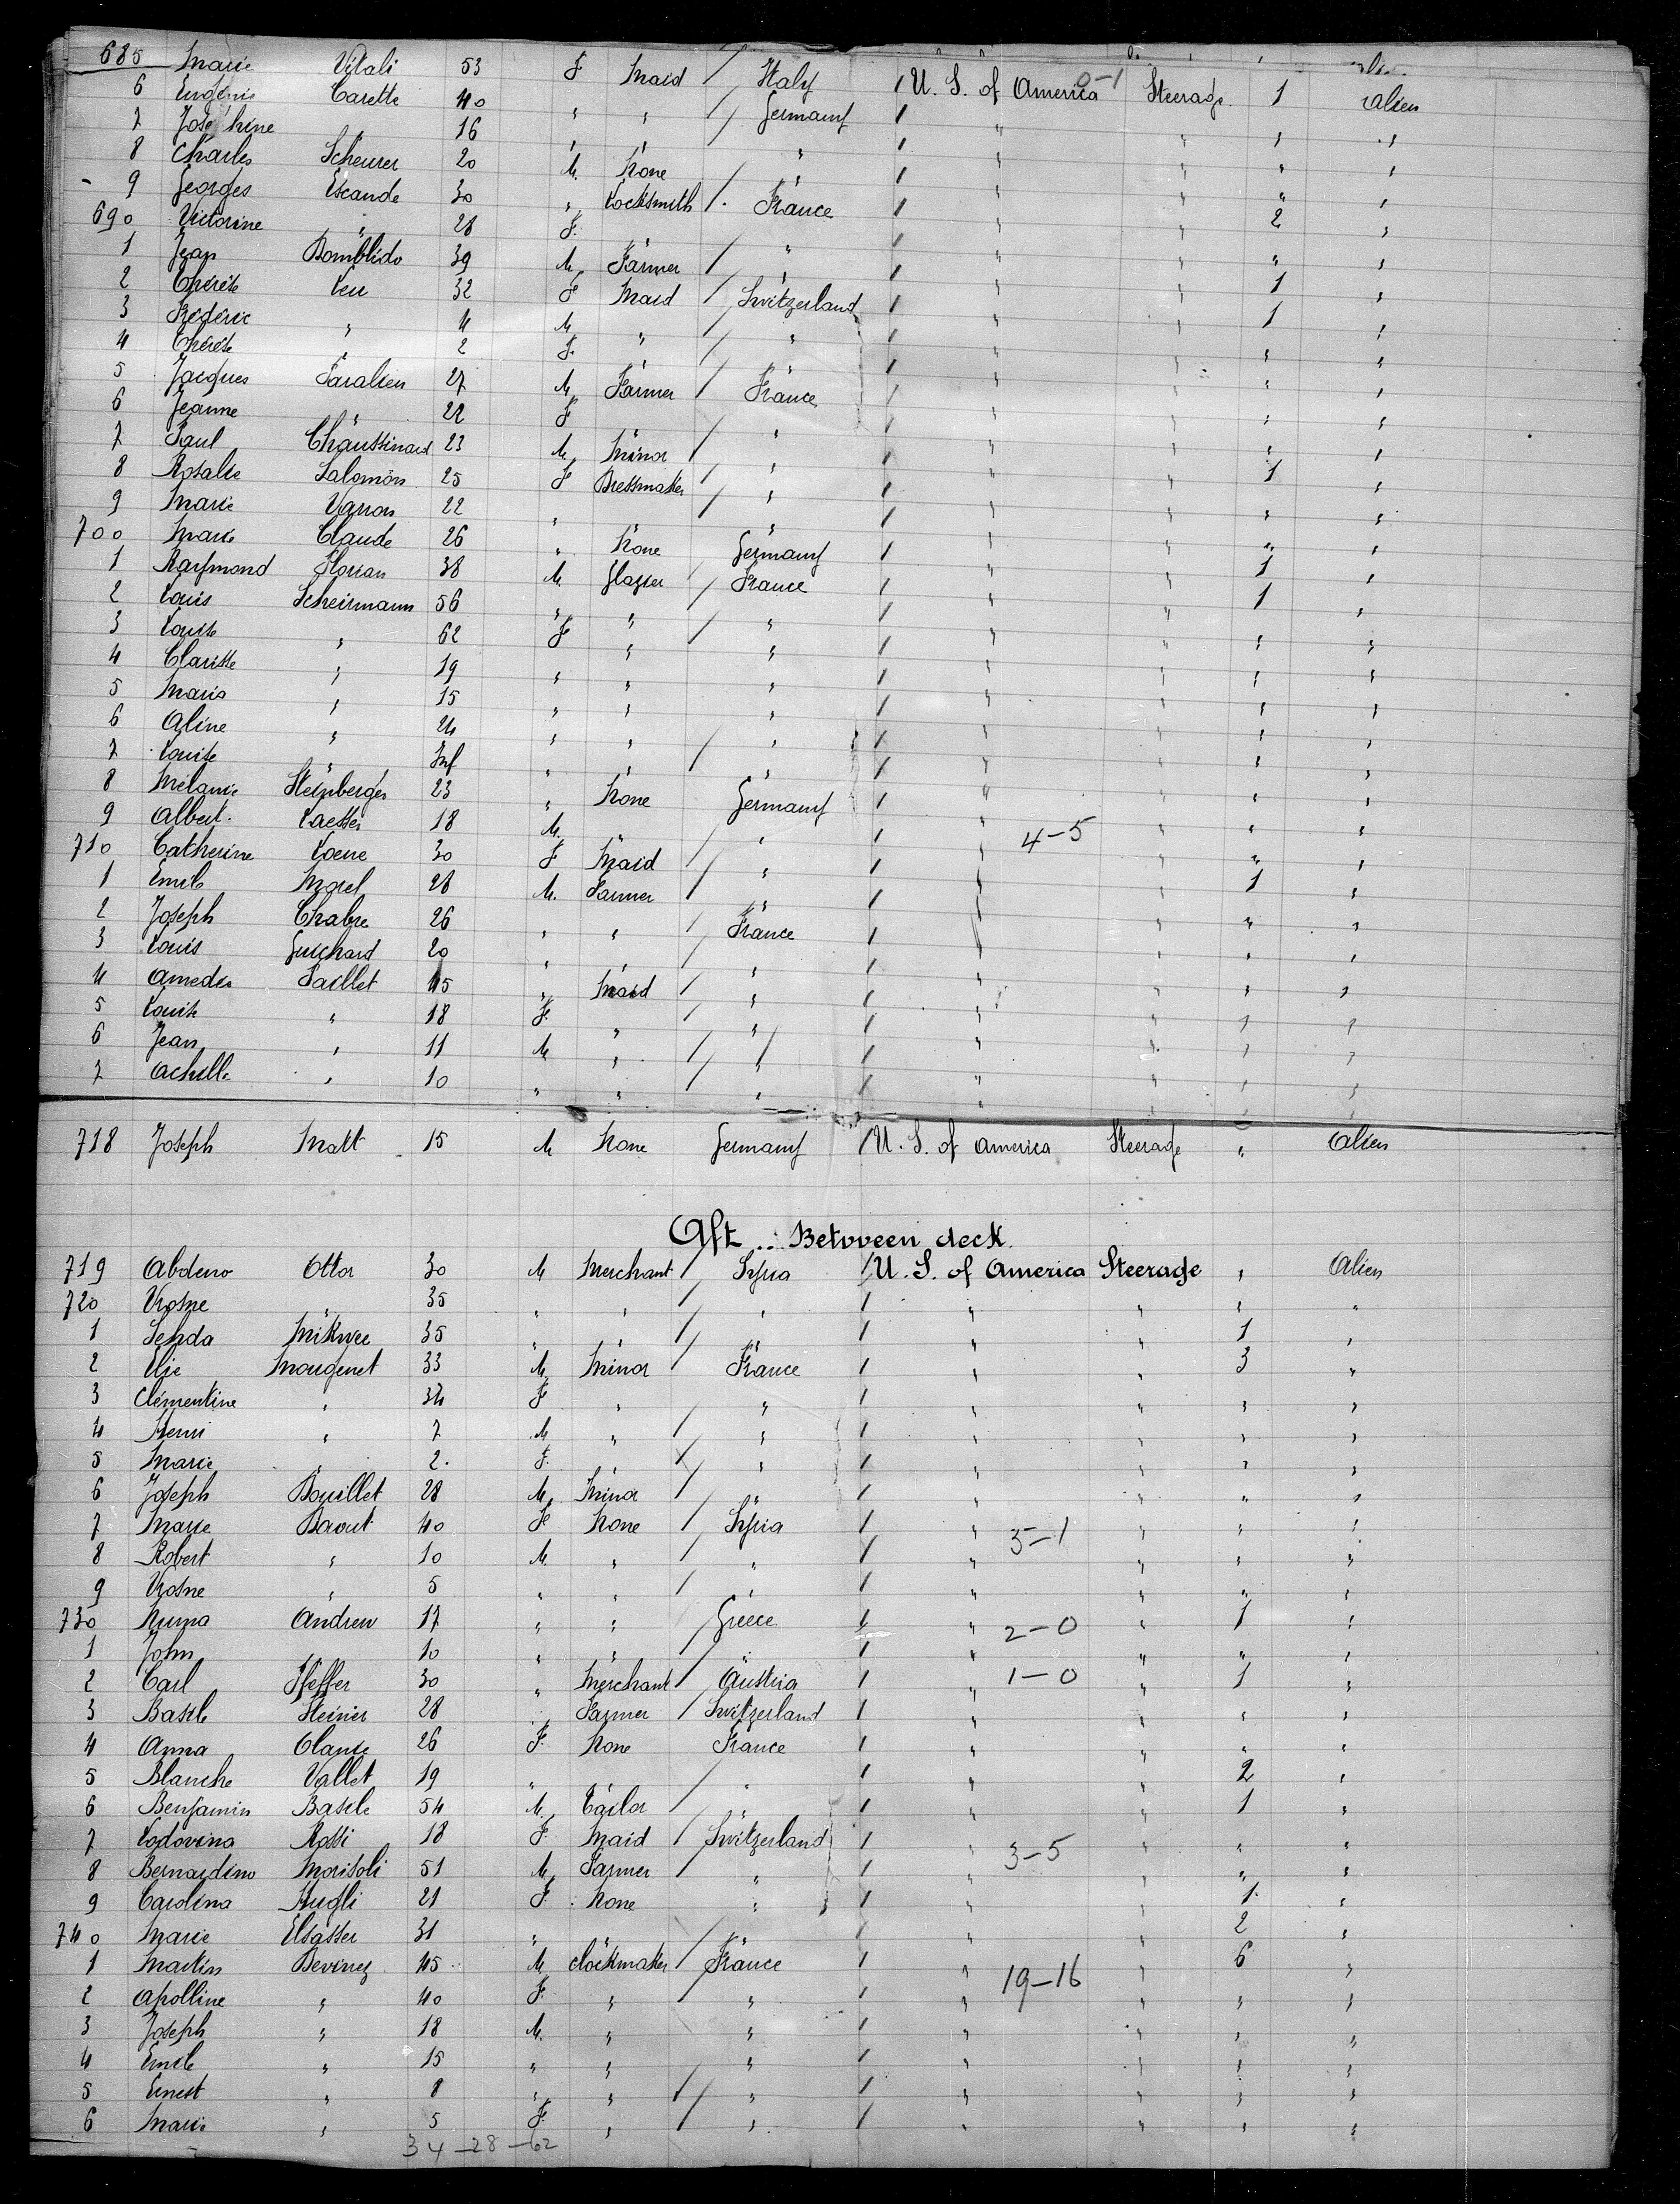 685 Marie Vitali 53 F Maid / Italy / U. S. of America 0-1 Steerage 1 Alien
6 Eugénie Carette 40 " " / Germany / " " " "
7 Josephine " 16 " " " / " " " "
8 Charles Scheurer 20 M. None / " / " " " "
9 Georges Escande 30 " Locksmith / France / " " 2 "
690 Victorine " 28 F. " / " " " "
1 Jean Bomblido 39 M. Farmer / " / " " 1 "
2 Thérèse Leu 32 F Maid / Switzerland / " " 1 "
3 Frédéric " 4 M. " / " / " " " "
4 Thérèse " 2 F. " / " / " " " "
5 Jacques Paralieu 27 M. Farmer / France / " " " "
6 Jeanne " 22 F " / " / " " " "
7 Paul Chaussinard 23 M. Minor / " / " " 1 "
8 Rosalie Salomon 25 F Dressmaker / " / " " " "
9 Marie Varron 22 " " " / " " " "
700 Marie Claude 26 " None Germany / " " 1 "
1 Raymond Florian 38 M Glazier / France / " " 1 "
2 Louis Scheirmann 56 " " / " / " " " "
3 Louise " 62 F " " / " " " "
4 Clarisse " 19 " " " / " " " "
5 Maria " 15 " " " / " " " "
6 Aline " 24 " " / " / " " " "
7 Louise " Inf " " " / " " " "
8 Mélanie Steinberger 23 " None Germany / " " " "
9 Albert Laesser 18 M. " / " / " 4-5 " " "
710 Catherine Loene 30 F Maid / " / " " 1 "
1 Emile Morel 28 M. Farmer / " / " " " "
2 Joseph Chabre 26 " " / France / " " " "
3 Louis Guichard 20 " " / " / " " " "
4 Amedée Paillet 45 " Maid / " / " " " "
5 Louise " 18 F. " " / " " " "
6 Jean " 11 M " / / / " " " "
7 Achille " 10 " " / " / " " " "
718 Joseph Matt 15 M None Germany / U. S. of America Steerage " Alien
Aft .. Between deck.
719 Abdeno Ottor 30 M Merchant / Syria / U. S. of America Steerage " Alien
720 Vrosne " 35 " " / " / " " " "
1 Senda Mikwee 35 " " / " / " " 1 "
2 Elie Mougenet 33 M. Minor / France / " " 3 "
3 Clémentine " 34 F " " / " " " "
4 Henri " 7 M " / " / " " " "
5 Marie " 2. F. " / " / " " " "
6 Joseph Bouillet 28 M. Minor / " / " " " "
7 Marie Baout 40 F None / Syria / " 3-1 " " "
8 Robert " 10 M. " / " / " " " "
9 Vrosne " 5 " " / " / " " " "
730 Numa Andrew 17 " " / Greece / " 2-0 " 1 "
1 John " 10 " " / " / " " " "
2 Carl Pfeffer 30 " Merchant / Austria / " 1-0 " 1 "
3 Basile Steiner 28 " Farmer / Switzerland / " " " "
4 Anna Clause 26 F. None France / " " " "
5 Blanche Vallet 19 " " / " / " " 2 "
6 Benjamin Basile 54 M. Tailor / " / " " 1 "
7 Lodovina Rossi 18 F. Maid / Switzerland / " 3-5 " " "
8 Bernardino Morisoli 51 M. Farmer / " / " " " "
9 Carolina Hugli 21 F. None " / " " 1. "
740 Marie Elsasser 31 " " / " / " " 2 "
1 Martin Devinez 45 M. Clockmaker / France / " 19-16 " 6 "
2 Apolline " 40 F. " / " / " " " "
3 Joseph " 18 M. " " / " " " "
4 Emile " 15 " " " / " " " "
5 Ernest " 8 " " / / " / " " " "
6 Marie " 5 F. " / " / " " " "
34-28-62